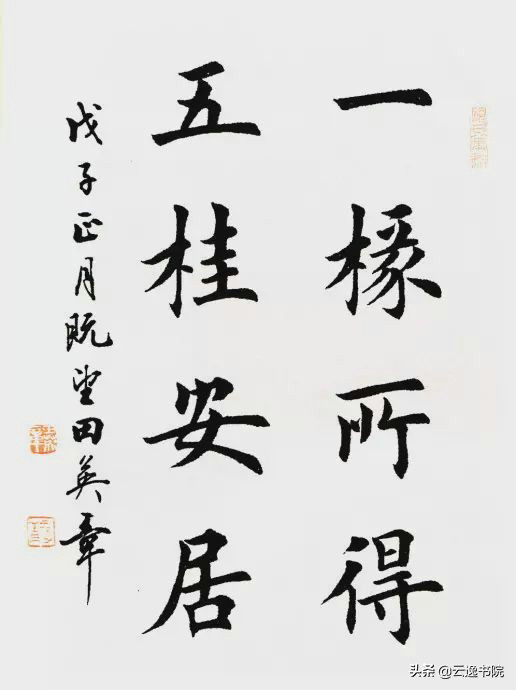 一椽所得
五桂安居
戊子正月既望田英章
头条 @云逸书院